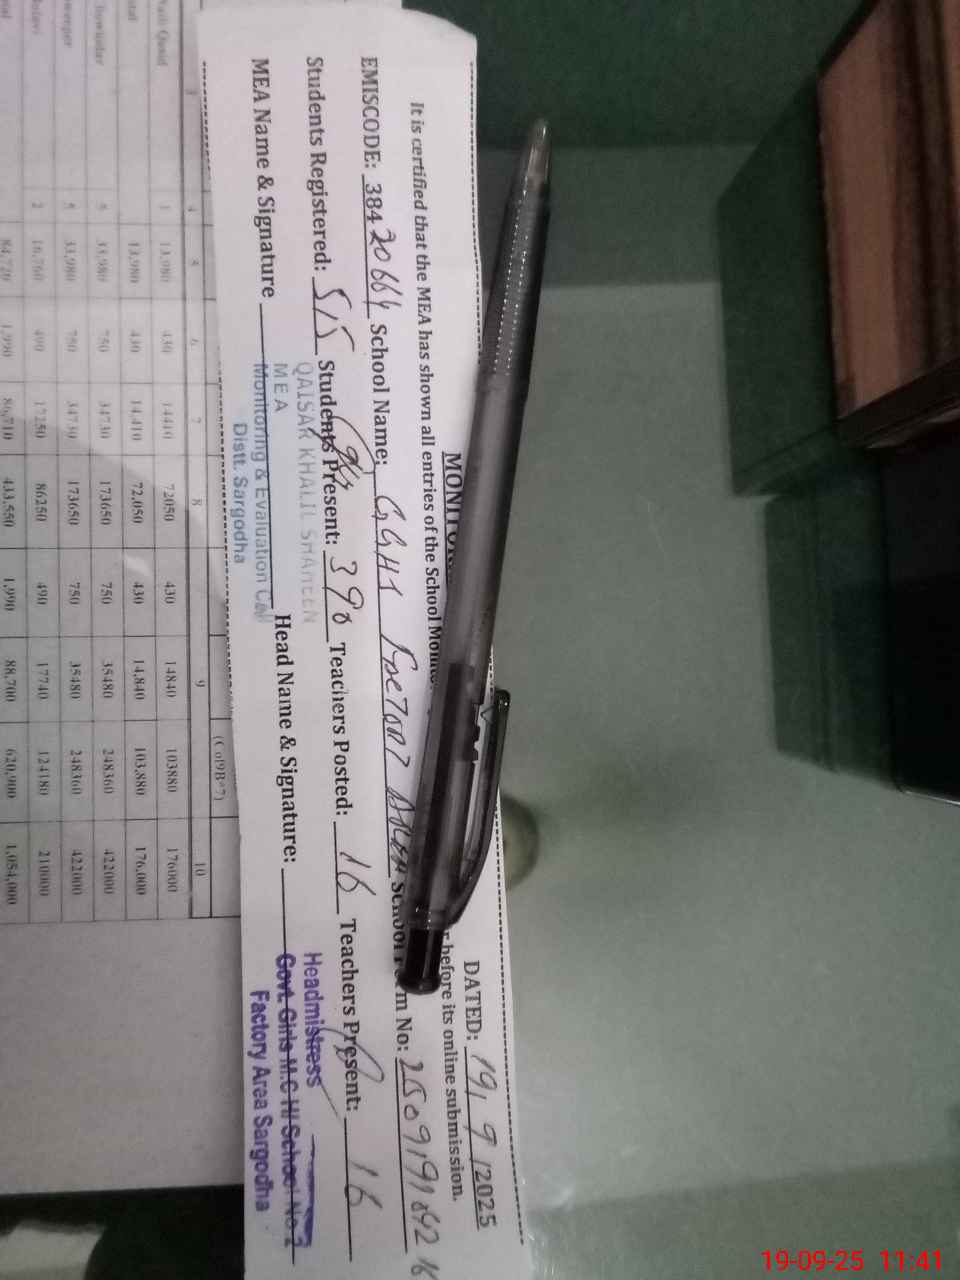 DATED: 19/9/2025
It is certified that the MEA has shown all entries of the School before its online submission.
EMISCODE: 38420664 School Name: GGHS School No:
Students Registered: 515 Students Present: 390 Teachers Posted: 16 Teachers Present: 16
MEA Name & Signature Head Name & Signature:
QAISAR KHALIL SHAHEEN
MEA
Monitoring & Evaluation
Distt. Sargodha
Headmistress
Govt. Girls M.C H/School No.2
Factory Area Sargodha
(Col9B*7)
4 6 7 8 9 10
1 13,980 430 14410 72050 430 14840 103880 176000
13,980 430 14,410 72,050 430 14,840 103,880 176,000
33,980 750 34730 173650 750 35480 248360 422000
5 33,980 750 34730 173650 750 35480 248360 422000
2 16,760 490 17250 86250 490 17740 124180 210000
84,720 1,990 86,710 433,550 1,990 88,700 620,900 1,054,000
19-09-25 11:41